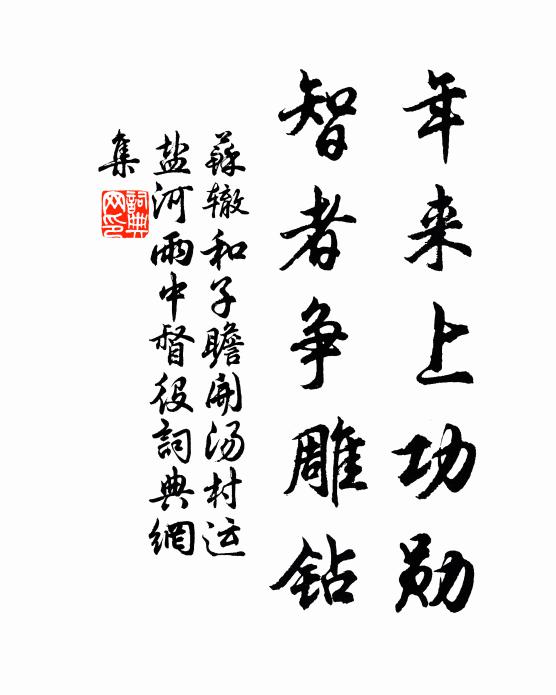 年来上功勋
智者争雕钻
蘇辙和子瞻開汤村运
盐河雨中督役詞典網
集
詞典
网印